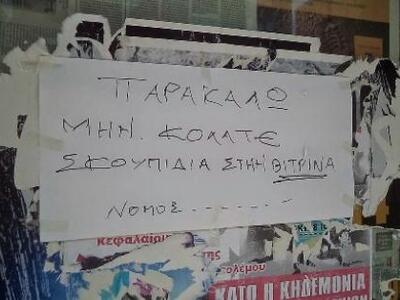 ΠΑΡΑΚΑΛΩ
ΜΗΝ. ΚΟΛΛΤΕ
ΣΚΟΥΠΙΔΙΑ ΣΤΗΗ ΒΙΤΡΙΝΑ
ΝΟΜΟΣ.......
κεφαλαίο
της
ολέμου
ΚΑΤΩ Η ΚΗΔΕΜΟΝΙΑ